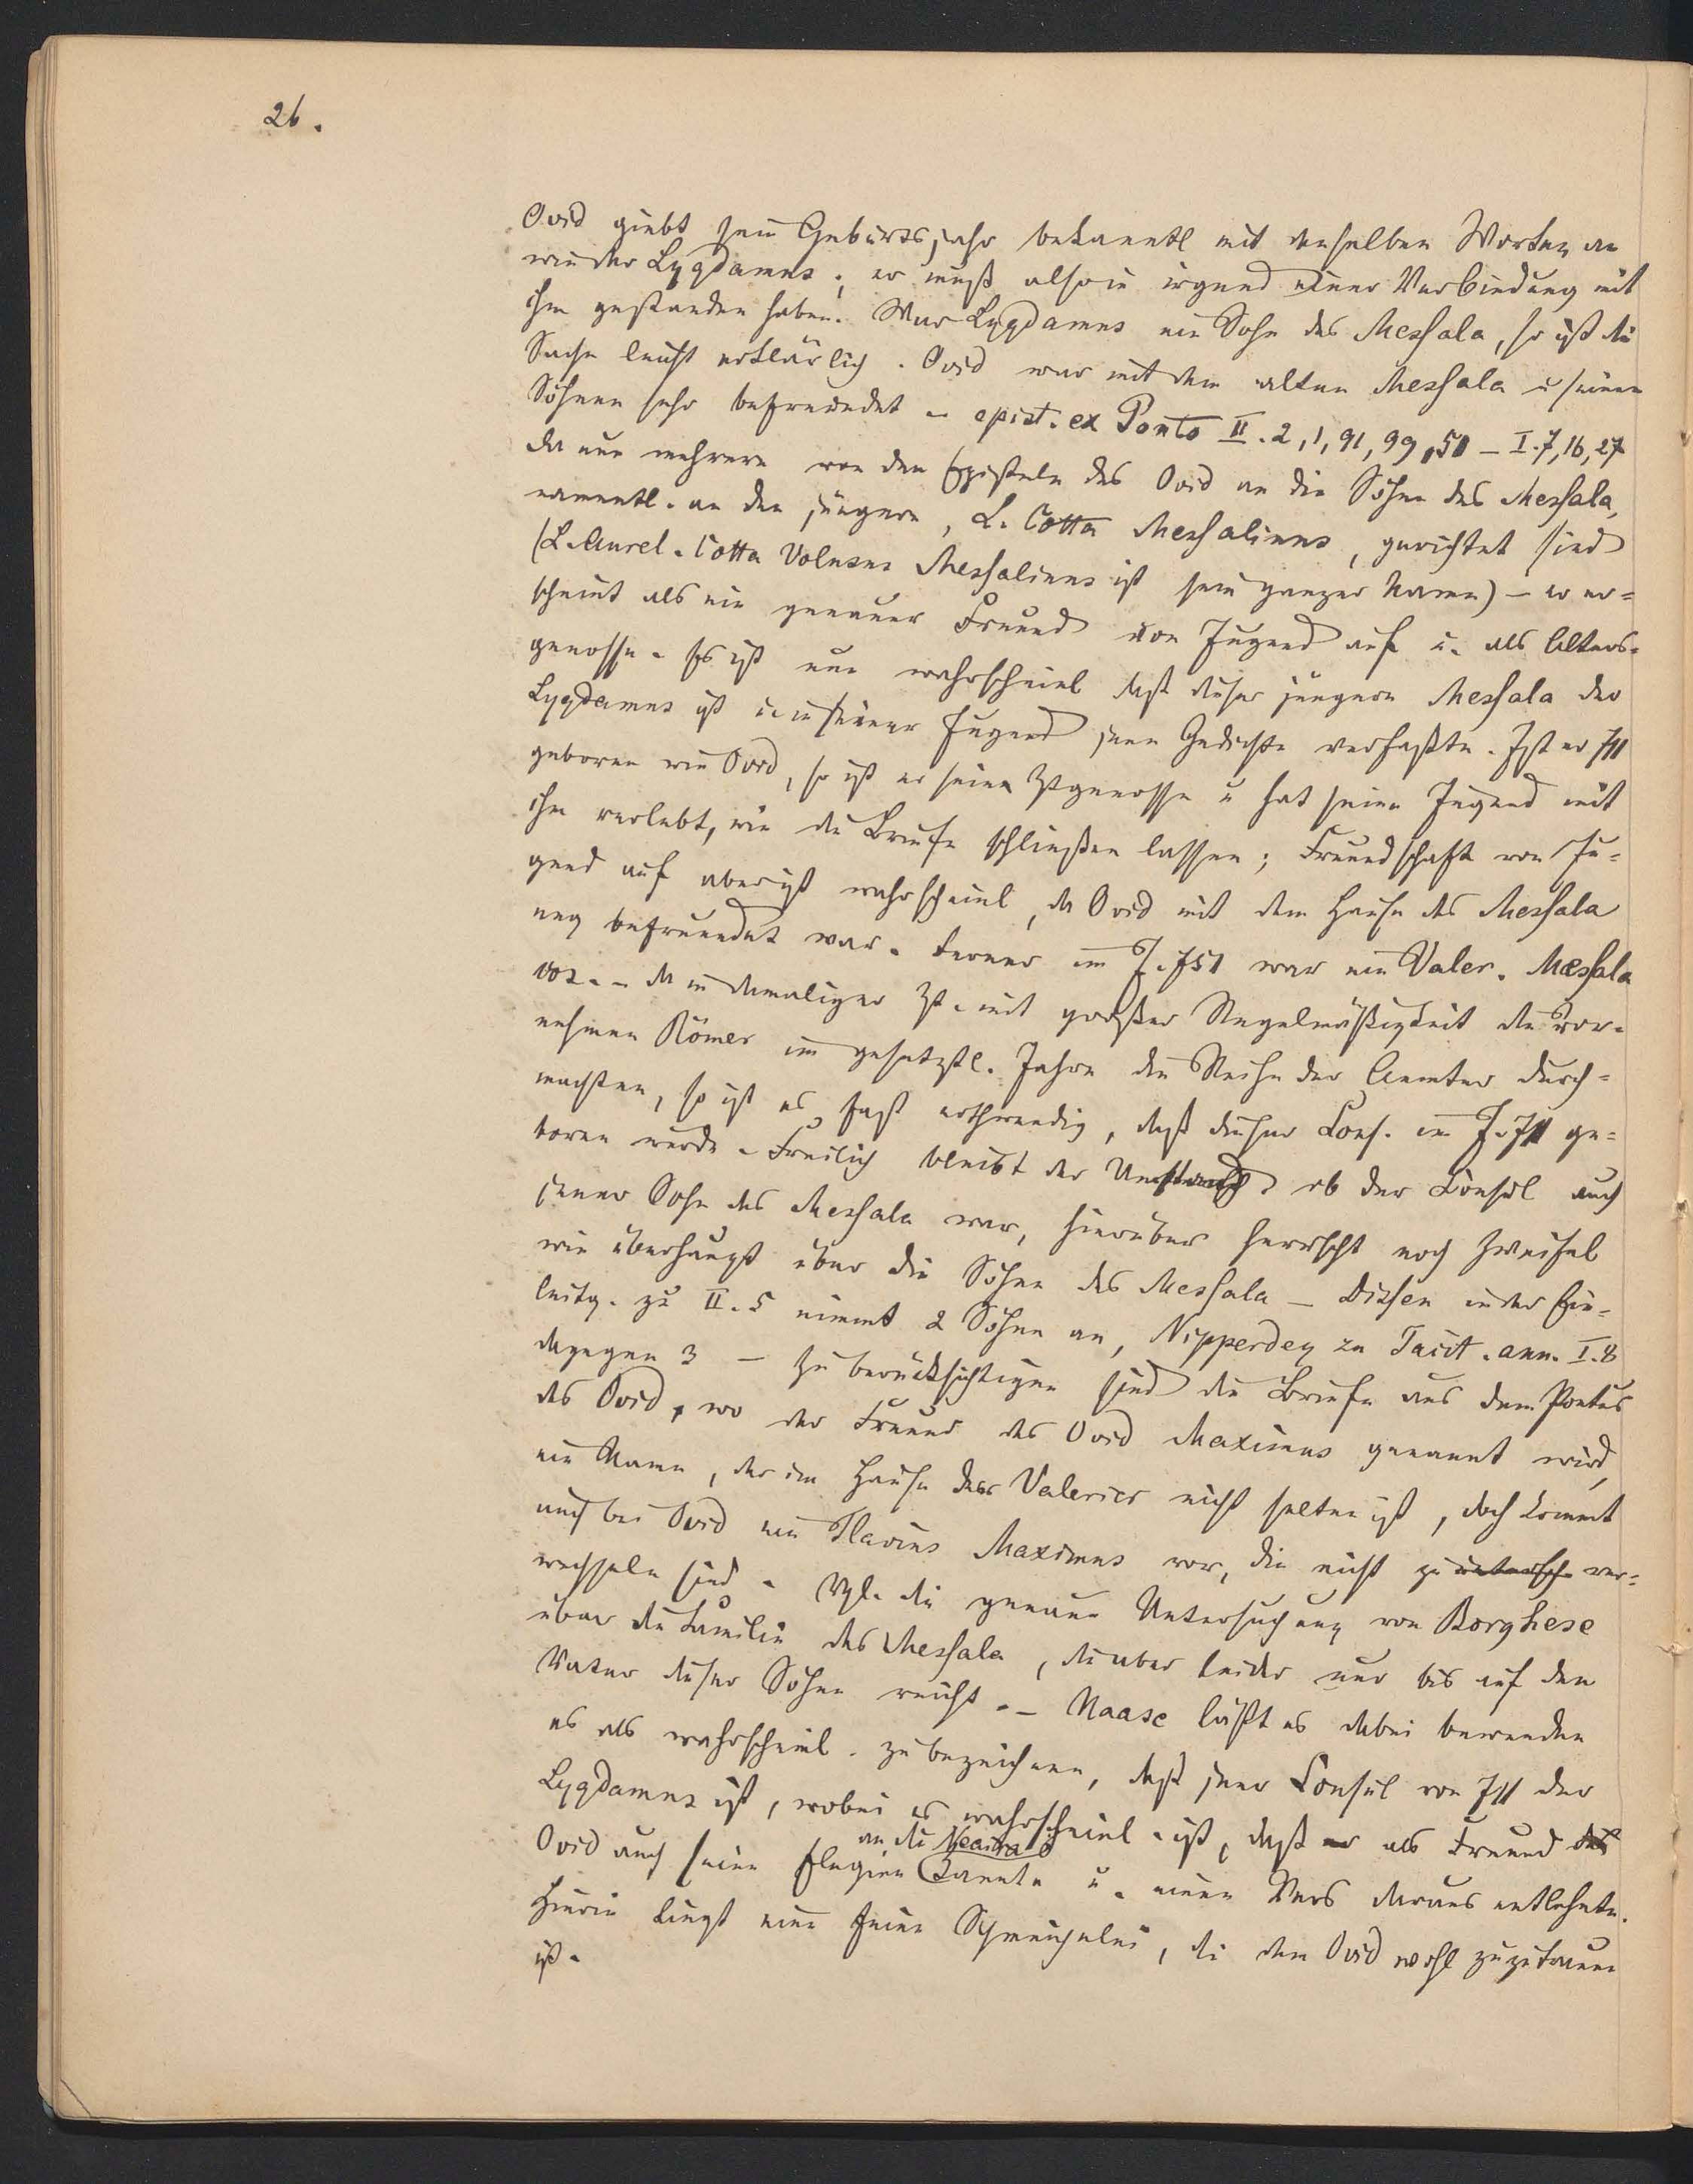 26.
Ovid giebt sein Geburtsjahr bekanntl mit denselben Worten an
wie der Lygdamus; er muß also in irgend einer Verbindung mit
ihm gestanden haben. War Lygdamus ein Sohn des Messala, so ist die
Sache leicht erklärlich. Ovid war mit dem alten Messala u seinen
Söhnen sehr befreundet – epist. ex Ponto II. 2, 1, 91, 99, 51 – I. 7, 16, 27
da nun mehrere von den Episteln des Ovid an die Söhne des Messala,
namentl. an den jüngern, L. Cotta Messalinus, gerichtet sind
(L. Aurel. Cotta Volusus Messalinus ist sein ganzer Name) – er er=
scheint als ein genauer Freund von Jugend auf u. als Alters=
genosse. Es ist nun wahrscheinl daß dieser jüngere Messala der
Lygdamus ist u in seiner Jugend jene Gedichte verfaßte. Ist er 711
geboren wie Ovid, so ist er seine Ztgenosse u hat seine Jugend mit
ihm verlebt, wie die Briefe schließen lassen; Freundschaft von Ju=
gend auf aber ist wahrscheinl, da Ovid mit dem Hause des Messala
eng befreundet war. Ferner im J. 751 war ein Valer. Messala
cos. – da in damaliger Zt. mit großer Regelmäßigkeit die vor=
nehmen Römer im gesetztl. Jahre die Reihe der Aemter durch=
machten, so ist es fast nothwendig, daß dieser Cons. im J. 711 ge=
boren wurde. Freilich bleibt der Umstand ob der Consul auch
jener Sohn des Messala war, hierüber herrscht noch Zweifel
wie überhaupt über die Söhne des Messala – Dissen in der Ein=
leitg. zu II. 5 nimmt 2 Söhne an, Nipperdey zu Tacit. ann. I. 8
dagegen 3 – zu berücksichtigen sind die Briefe aus dem Pontus
des Ovid, wo der Freund des Ovid Maximus genannt wird,
ein Name, der im Hause der Valerier nicht selten ist, doch kommt
auch bei Ovid ein Flavius Maximus vor, die nicht zu ver=
wechseln sind. Vgl. die genaue Untersuchung von Borghese
über die Familie des Messala, die aber leider nur bis auf den
Vater dieser Söhne reicht. – Haase läßt es dabei bewenden
es als wahrscheinl. zu bezeichnen, daß jener Consul von 711 der
Lygdamus ist, wobei es wahrscheinl. ist, daß er als Freund des
an die Neaera
Ovid auch seine Elegien kannte u. einen Vers daraus entlehnte.
Hierin liegt eine feine Schmeichelei, die dem Ovid wohl zuzutrauen
ist.